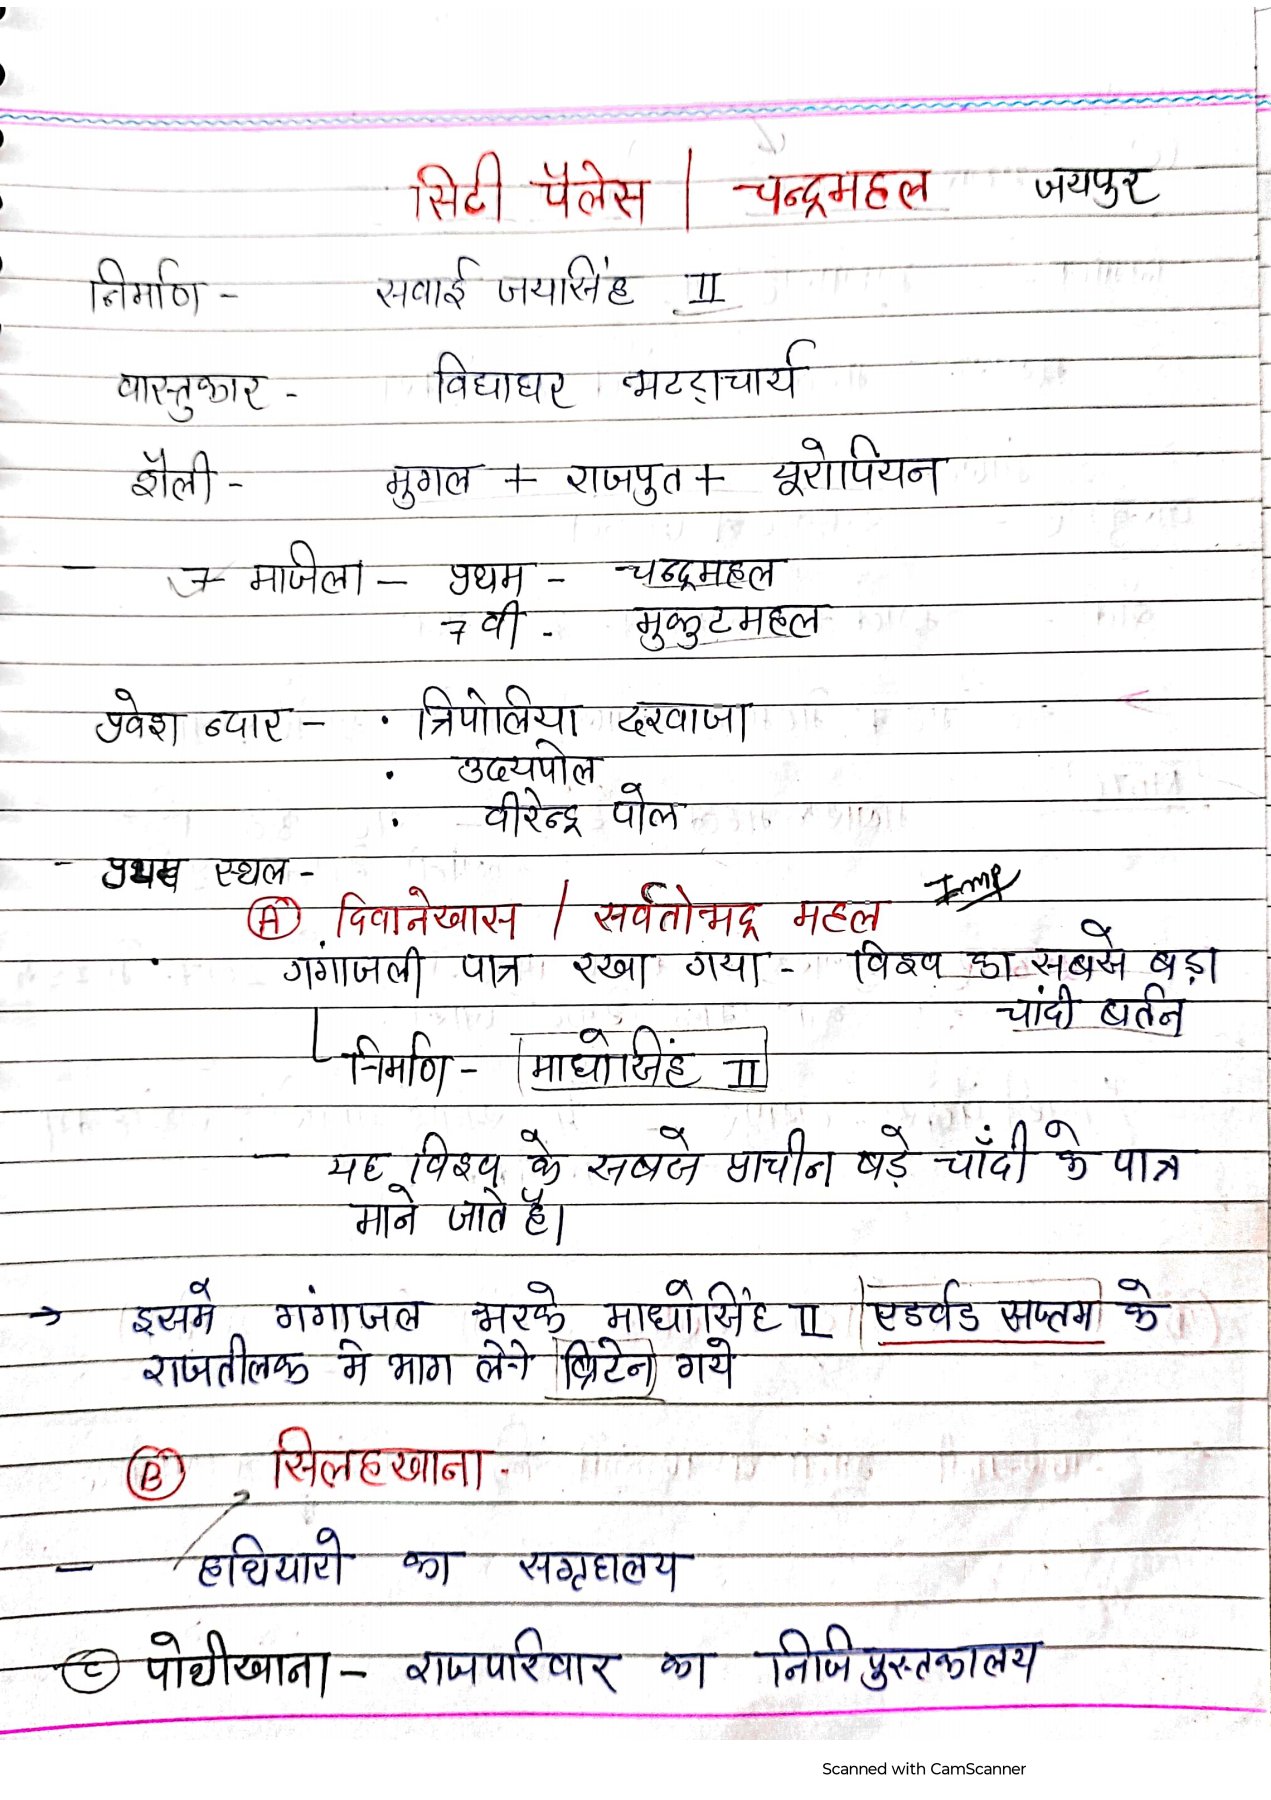 सिटी पैलेस | चन्द्रमहल जयपुर
निर्माण - सवाई जयसिंह II
वास्तुकार - विद्याधर भटट्राचार्य
शैली - मुगल + राजपुत + यूरोपियन
- 7 मंजिला - प्रथम - चन्द्रमहल
7 वी - मुकुटमहल
प्रवेश द्वार - • त्रिपोलिया दरवाजा
• उदयपोल
• वीरेन्द्र पोल
- स्थल -
(A) दिवानेखास / सर्वतोभद्र महल Imp
• गंगाजली पात्र रखा गया - विश्व का सबसे बड़ा
चांदी बर्तन
निर्माण - माधोसिंह II
- यह विश्व के सबसे प्राचीन बड़े चाँदी के पात्र
माने जाते है।
→ इसमे गंगाजल भरके माधोसिंह II एडर्वड सप्तम के
राजतीलक मे भाग लेने ब्रिटेन गये
(B) सिलहखाना -
- हथियारो का सग्रहालय
(C) पोथीखाना - राजपरिवार का निजि पुस्तकालय
Scanned with CamScanner